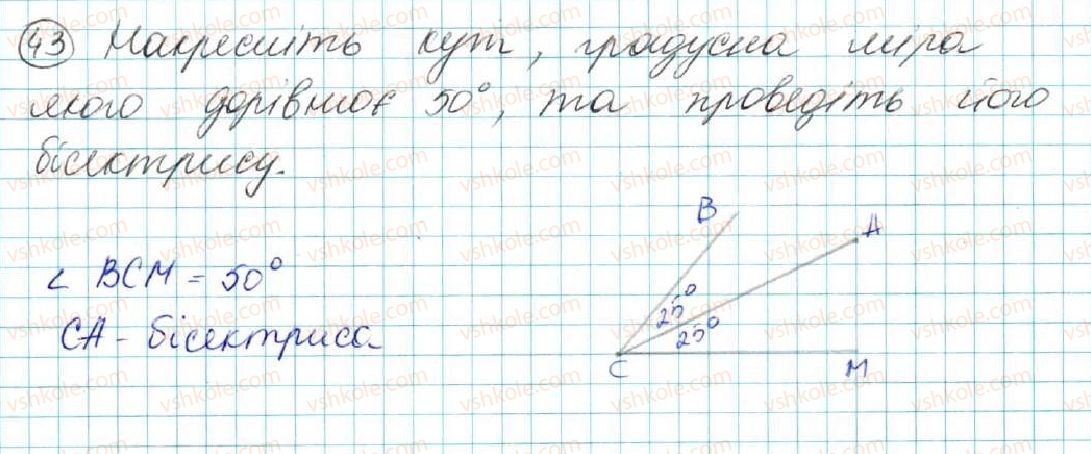 43 Накресліть кут, градусна міра
якого дорівнює 50°, та проведіть його
бісектрису.
B
A
∠ BCM = 50°
25°
CA - бісектриса
25°
C
M